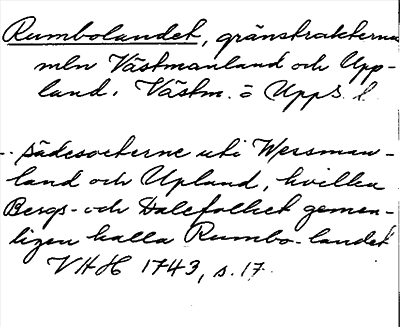 Rumbolandet, gränstrakterna
mln Västmanland och Upp-
land. Västm. o Uppl.
.. sädesorterne uti Wessman-
land och Upland, hvilka
Bergs- och Dalefolket gemen-
ligen kalla Rumbo-landet
VHH 1743, s. 17